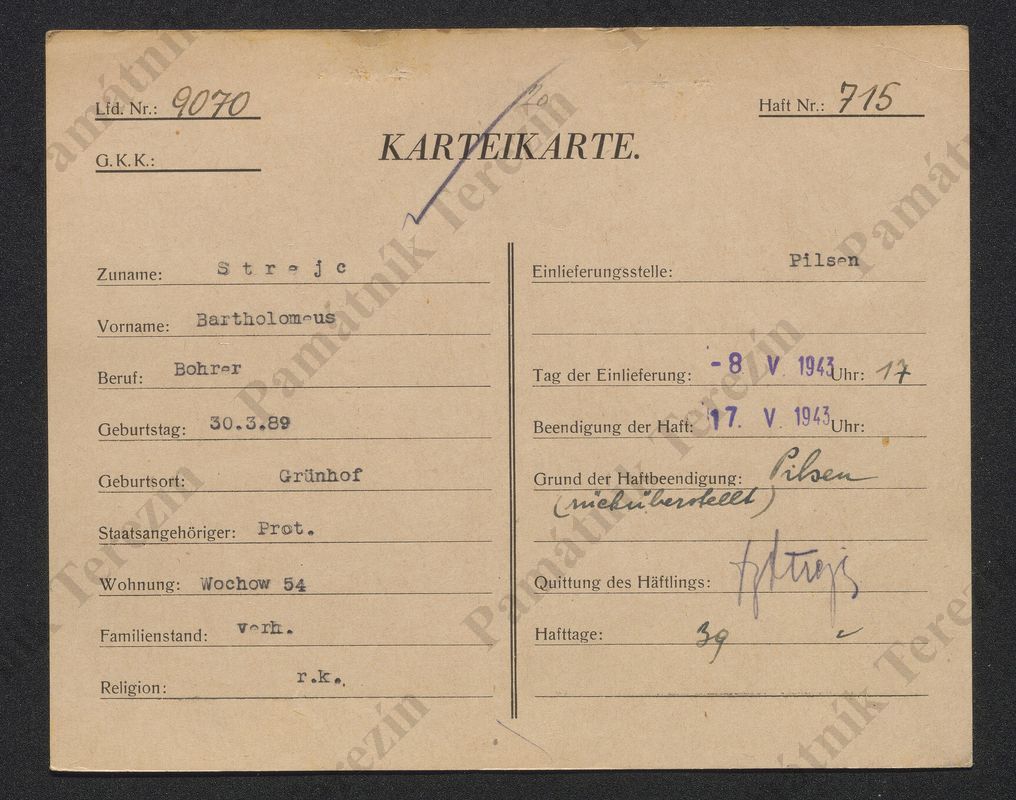 Lfd. Nr.: 9070
Haft Nr.: 715
G.K.K.:
KARTEIKARTE.
Zuname: Strejc
Vorname: Bartholomeus
Beruf: Bohrer
Geburtstag: 30.3.89
Geburtsort: Grünhof
Staatsangehöriger: Prot.
Wohnung: Wochow 54
Familienstand: verh.
Religion: r.k.
Einlieferungsstelle: Pilsen
Tag der Einlieferung: -8. V. 1943 Uhr: 17
Beendigung der Haft: 17. V. 1943 Uhr:
Grund der Haftbeendigung: Pilsen
(rücküberstellt)
Quittung des Häftlings:
Hafttage: 39
Památník Terezín
Památník Terezín
Památník Terezín
Památník Terezín
Památník Terezín